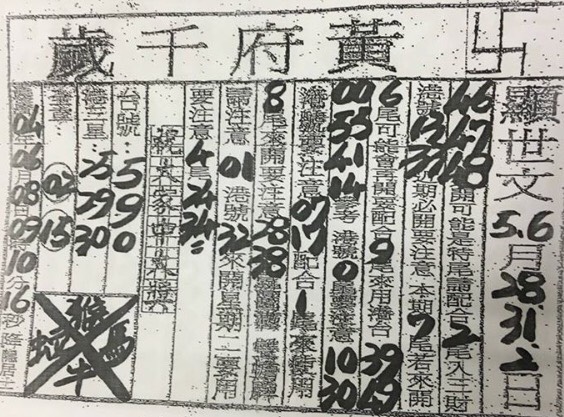 卍 黃府千歲
顯世文 5.6月 28.31.2日
46 47 48 開可能是特尾請配合2尾入三財
港號 13 期必開要注意 本期 7尾若來開
6尾可能會再開要配合9尾來用港台 39 49
00 55 41 14 港號 0尾 注意 10 30
港號要注意 07 17 配合 1尾來 用
8尾來開要注意 28 38
請注意 01 港號 32 來開星期二要用
要注意 4尾 24 34
祝大家中大獎
台號: 5 9 0
港三星: 25 29 30
02 15
04年06月08日09時10分16秒降龍居士
猴 馬 牛 蛇